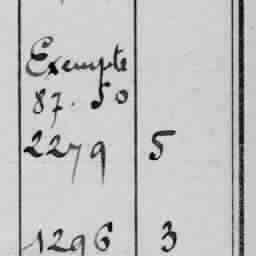 Exempte
87.50
2279 5
1296 3